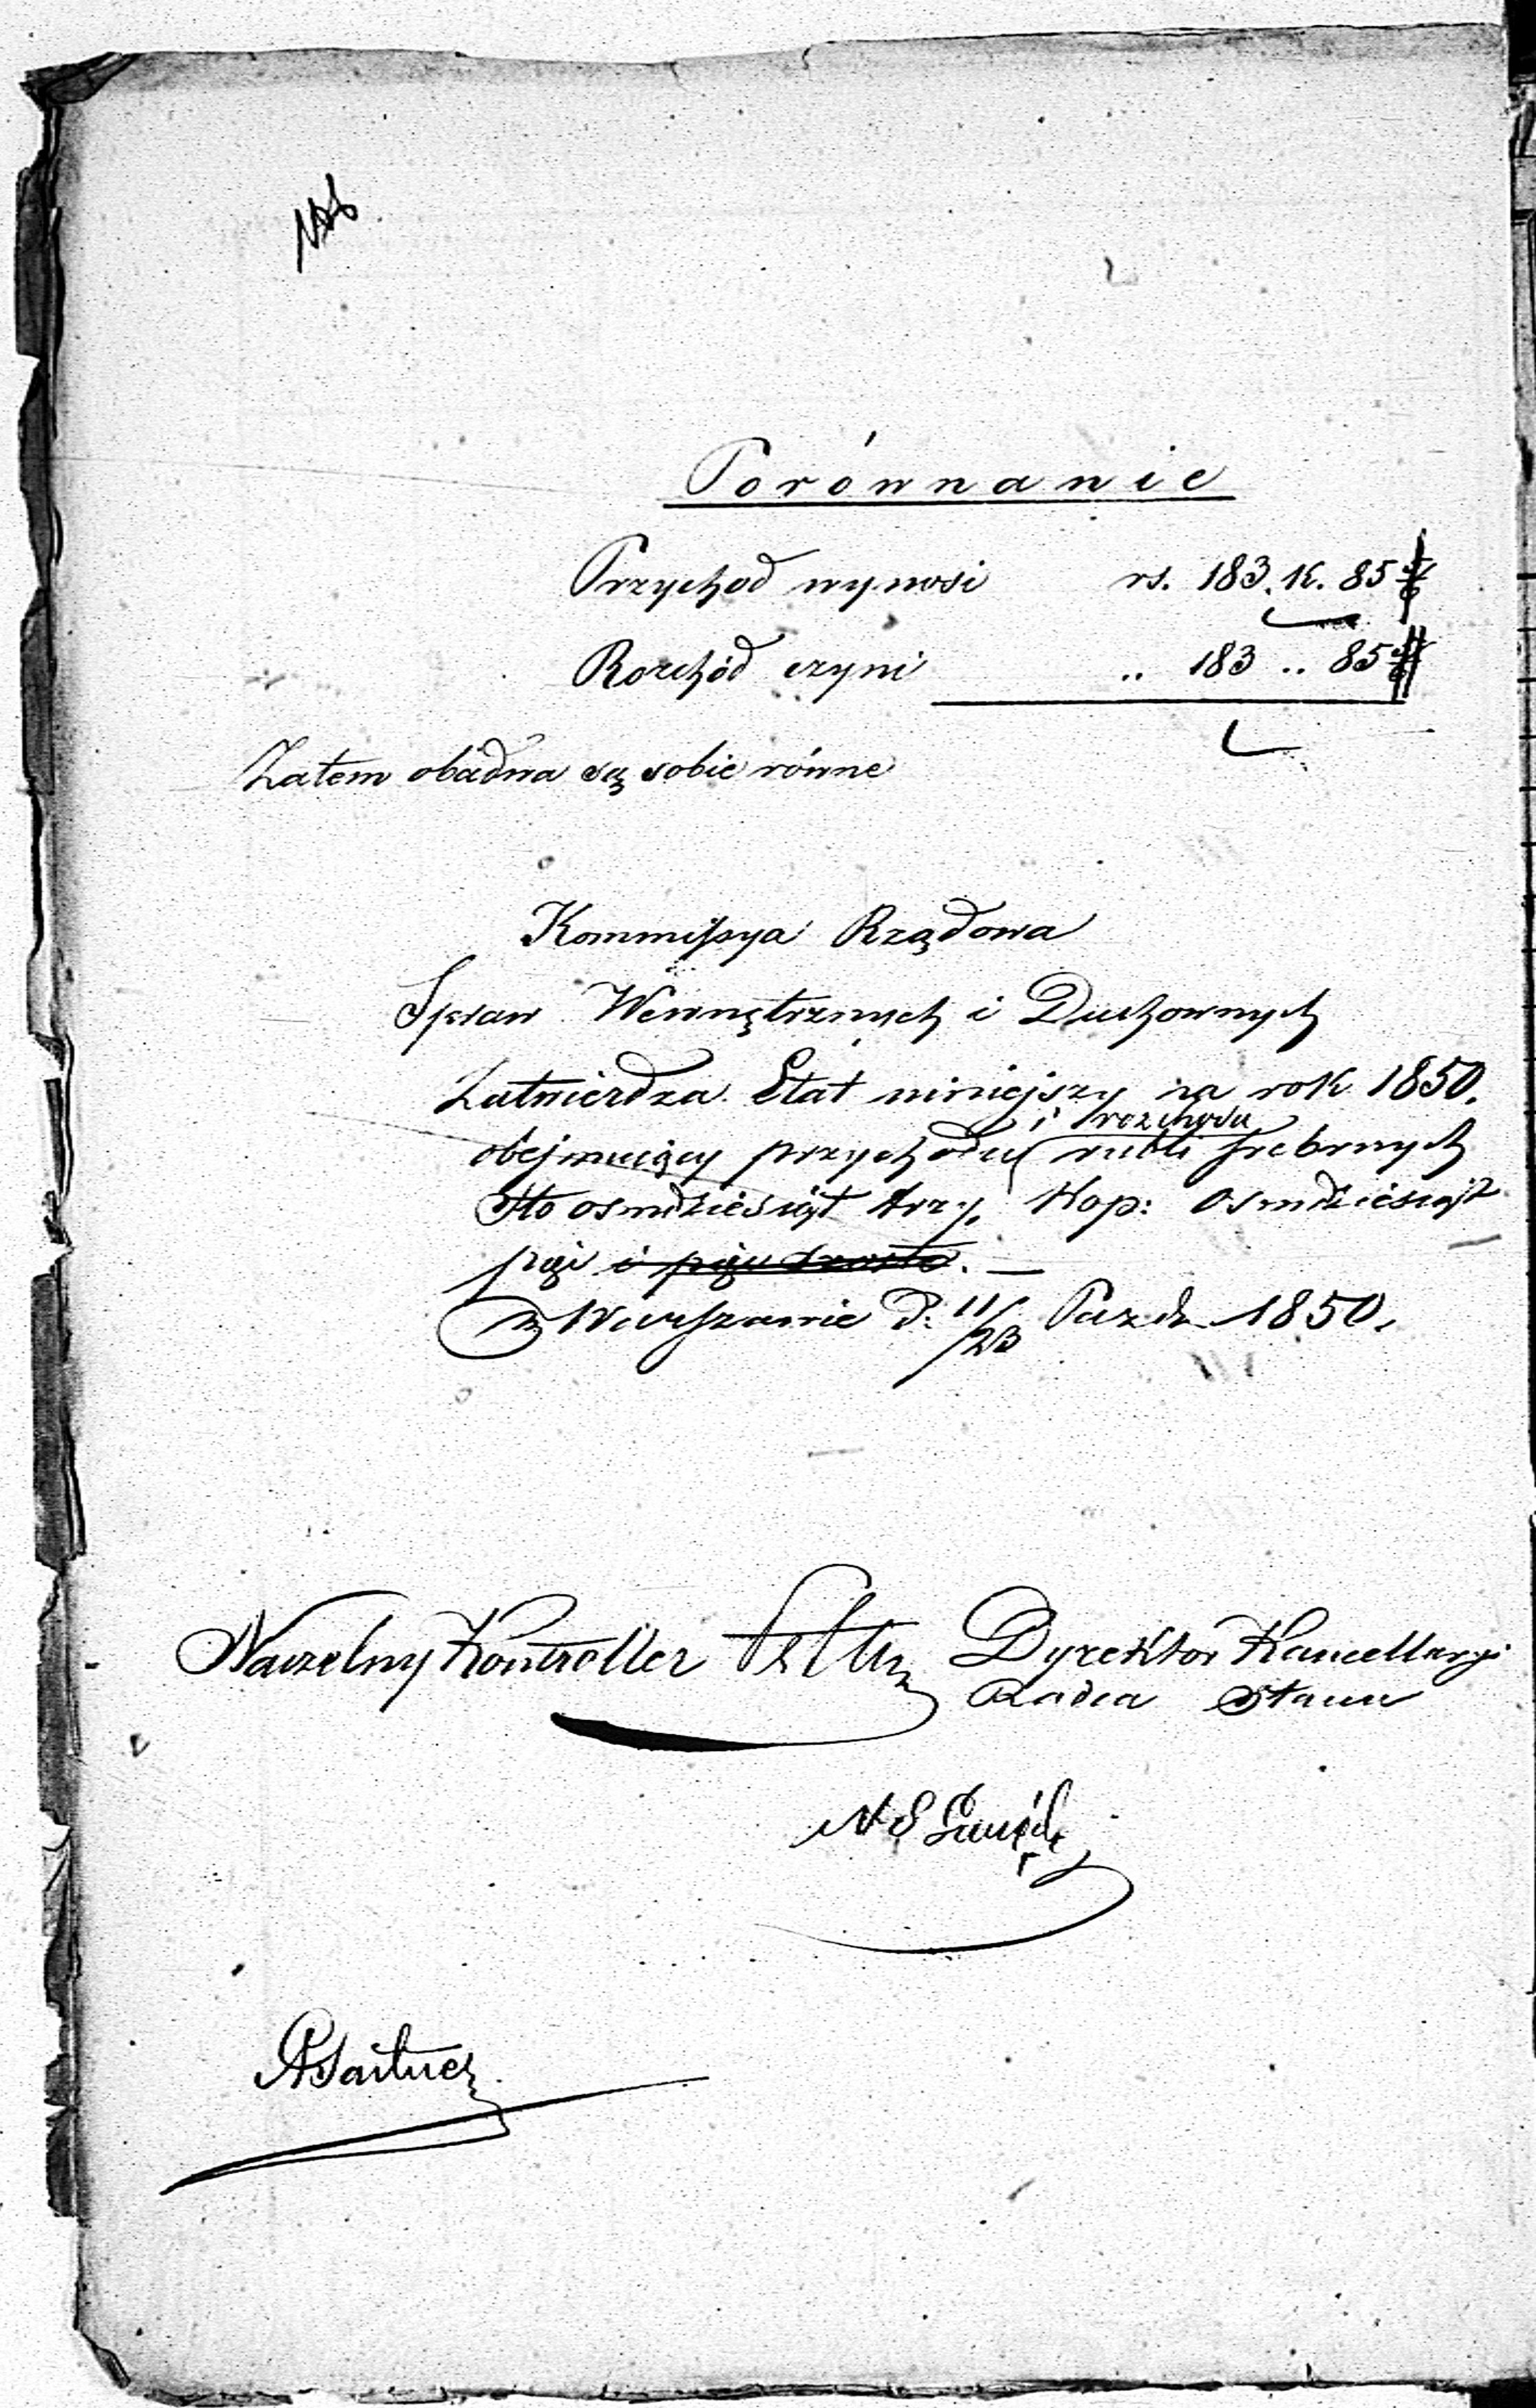 Porównanie
Przychod wynosi rs. 183. k. 85
Rozchód czyni .. 183 .. 85
Zatem obadwa są sobie równe
Kommissya Rządowa
Spraw Wewnętrznych i Duchownych
Zatwierdza Etat niniejszy na rok 1850.
i rozchodu
obejmujący przychodu rubli srebrnych
Sto osmdziesiąt trzy, kop: osmdziesiąt
pięć i pięć szóste. —
w Warszawie d: 11/23 Paźdz 1850.
Naczelny Kontroller Dyrektor Kancellaryi
Radca Stanu